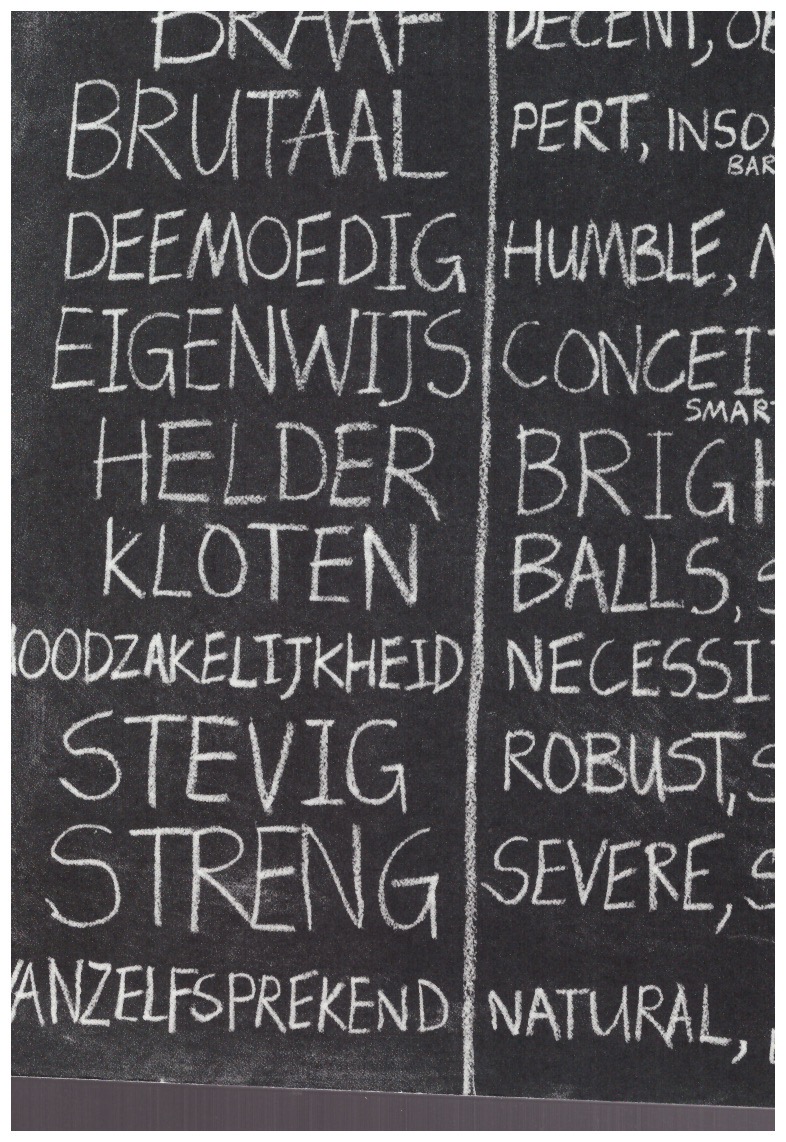 BRAAF DECENT, OB
BRUTAAL PERT, INSOL
BAR
DEEMOEDIG HUMBLE,
EIGENWIJS CONCEIT
SMART
HELDER BRIGH
KLOTEN BALLS, S
OODZAKELIJKHEID NECESSIT
STEVIG ROBUST, S
STRENG SEVERE, S
VANZELFSPREKEND NATURAL,